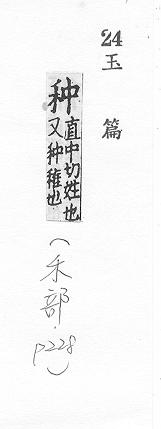 24
玉篇
种直中切姓也
又种稚也
(禾部.
p228)